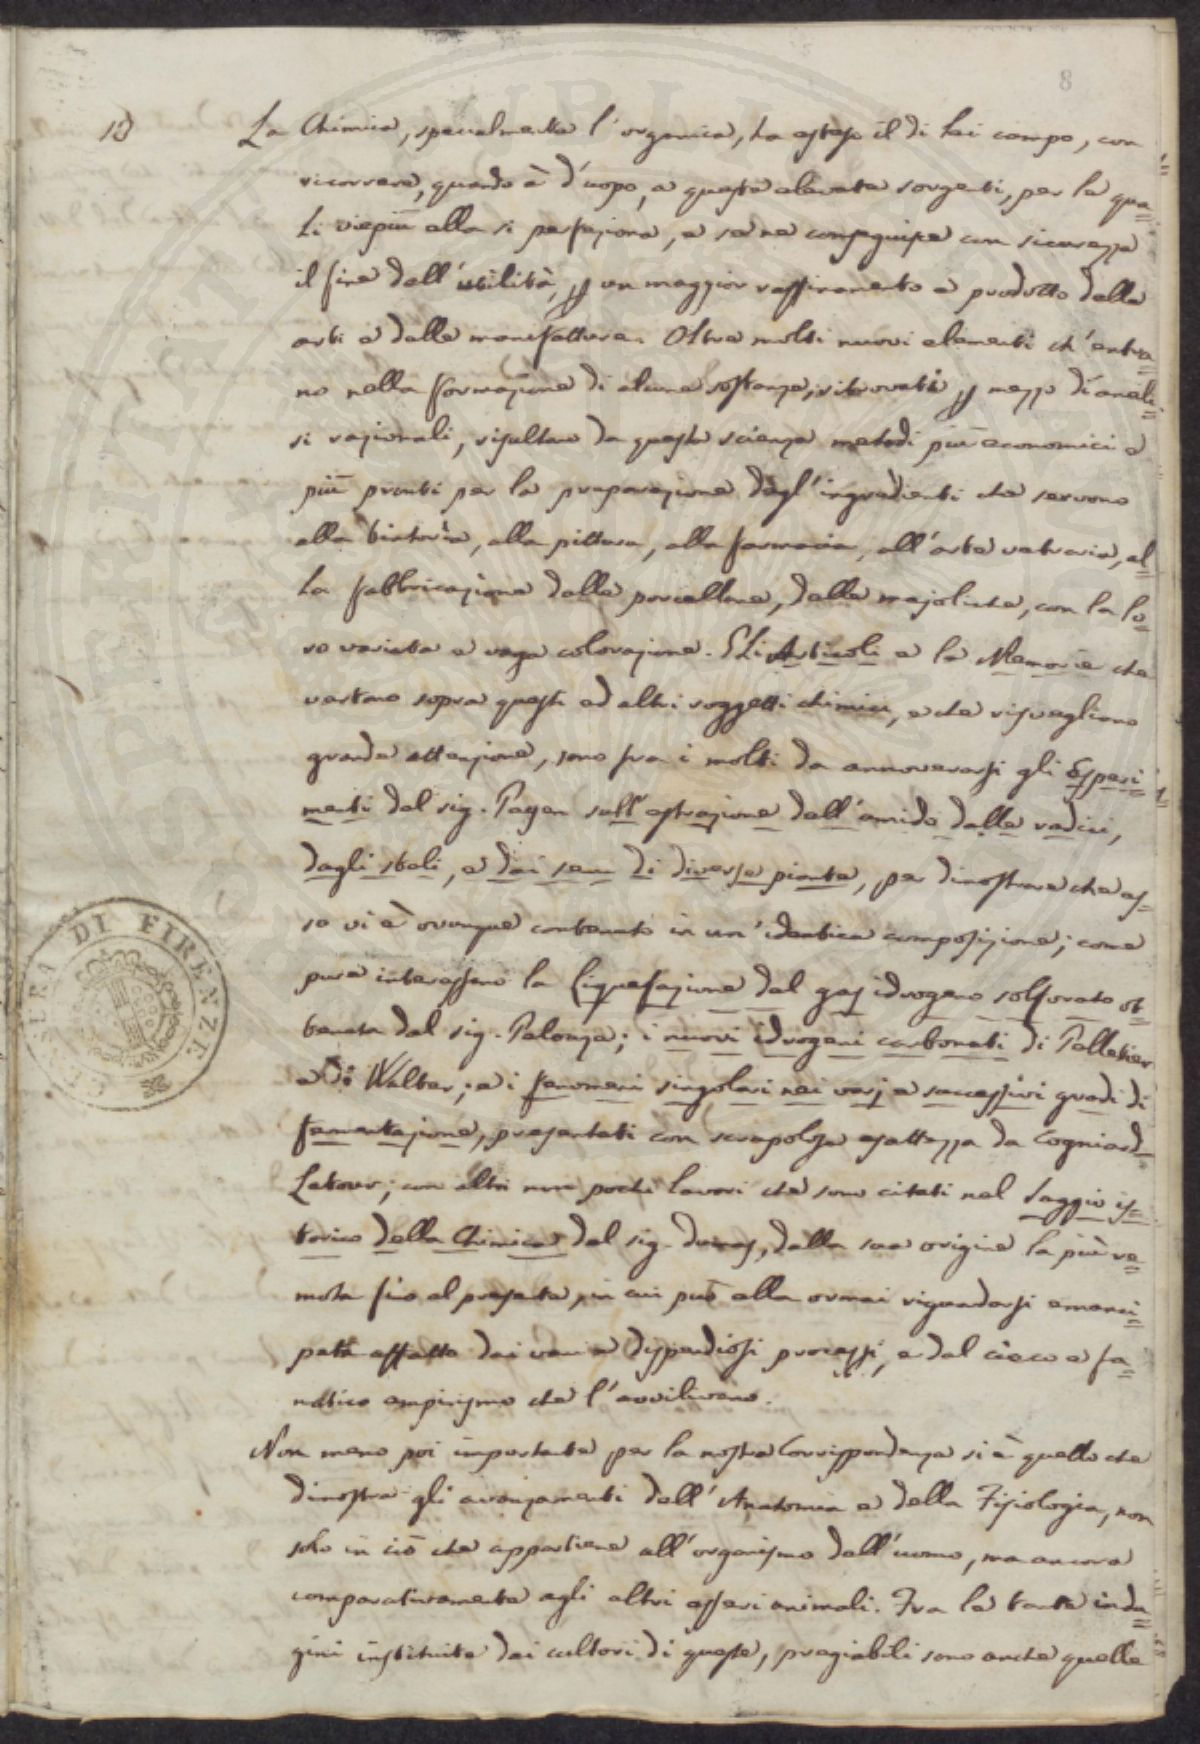 8
10
La Chimica, specialmente l'organica, ha esteso il di lei campo, con
ricorrere, quando è d'uopo, a queste elevate sorgenti, per le qua=
li viepiù ella si perfeziona, e se ne conseguisce con sicurezza
il fine dell'utilità, p un maggior raffinamento e prodotto delle
arti e delle manifatture. Oltre molti nuovi elementi ch'entra=
no nella formazione di alcune sostanze, ritrovati p mezzo d'anali=
si razionali, risultano da questa scienza metodi più economici e
più pronti per la preparazione degl'ingredienti che servono
alla tintoria, alla pittura, alla farmacia, all'arte vetraria, al=
la fabbricazione delle porcellane, delle majoliche, con la lo=
ro variata e vaga colorazione. Gli Articoli e le Memorie che
vertono sopra questi ed altri soggetti chimici, e che risvegliono
grande attenzione, sono fra i molti da annoverarsi gli Esperi=
menti del sig. Payen sull'estrazione dell'amido dalle radici,
dagli steli, e dai semi di diverse piante, per dimostrare che es=
so vi è ovunque contenuto in un'identica composizione; come
pure interessano la Liquefazione del gas idrogeno solforato ot=
tenuta dal sig. Pelouze; i nuovi idrogeni carbonati di Pelletier
e di Walter; e i fenomeni singolari nei varj e successivi gradi di
fermentazione, presentati con scrupolosa esattezza da Cogniard=
Latour; con altri non pochi lavori che sono citati nel Saggio is=
torico della Chimica del sig. Dumas, dalla sua origine la più re=
mota fino al presente, in cui può ella ormai riguardarsi emanci=
pata affatto dai vani e dispendiosi processi, e dal cieco e fa=
natico empirismo che l'avvilivano.
Non meno poi importante per la nostra Corrispondenza si è quello che
dimostra gli avanzamenti dell'Anatomia e della Fisiologia, non
solo in ciò che appartiene all'organismo dell'uomo, ma ancora
comparativamente agli altri esseri animali. Fra le tante inda=
gini instituite dai cultori di queste, pregiabili sono anche quelle
DI FIRENZE